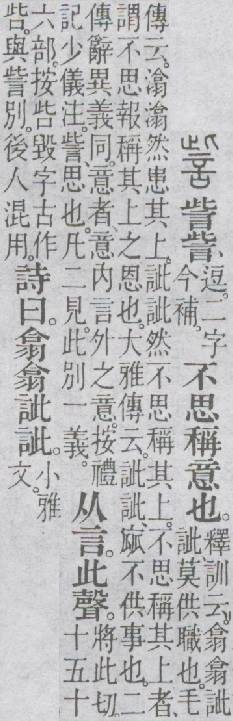 訾訾、逗。二字今補。不思稱意也。釋訓云。翕翕訿訿。莫供職也。毛
傳云。潝潝然患其上。訿訿然不思稱其上。不思稱其上者、
謂不思報稱其上之恩也。大雅傳云。訿訿、窳不供事也。二
傳辭異義同。意者、意內言外之意。按禮
記少儀注。訾、思也。凡二見。此別一義。从言。此聲。將此切。十五十
六部。按呰毀字古作
呰。與訾別。後人混用。詩曰。翕翕訿訿。小雅文。